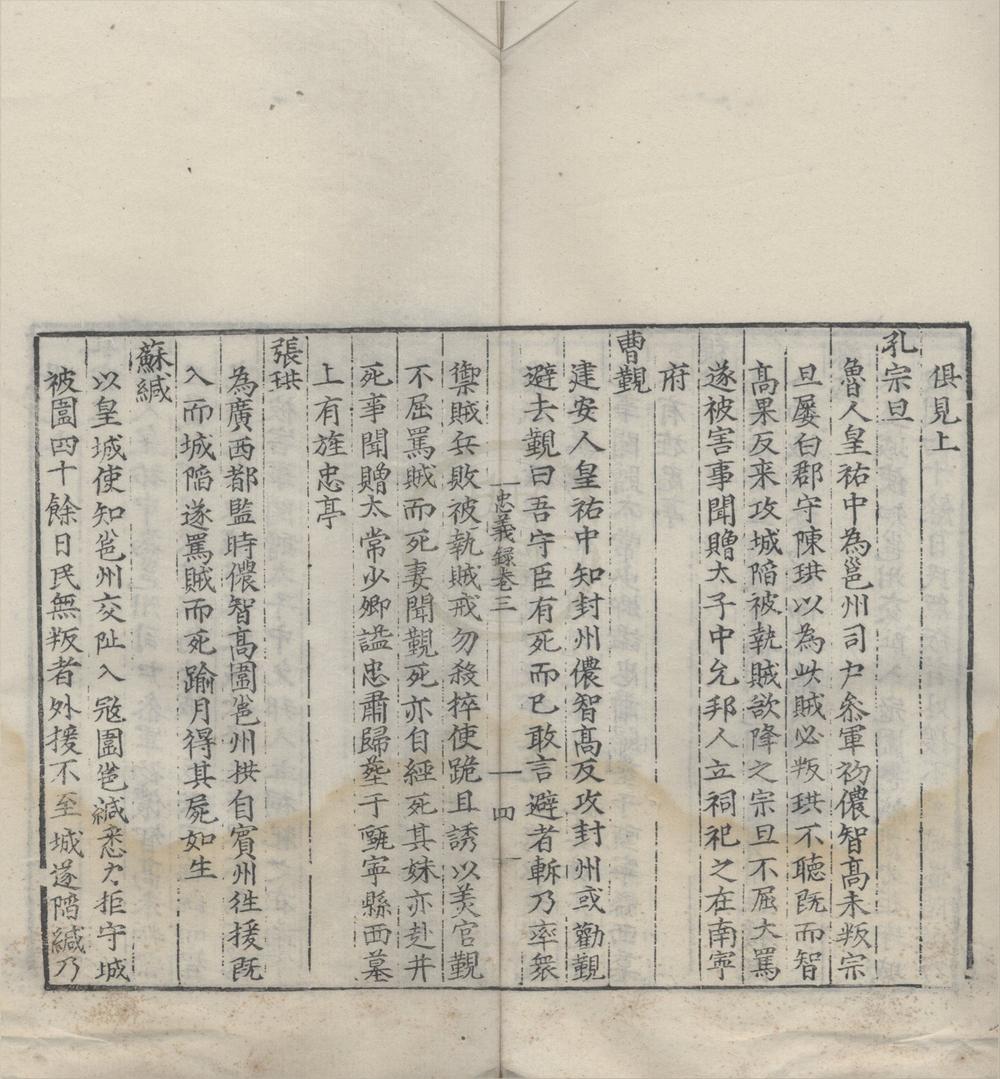 俱見上
孔宗旦
魯人皇祐中為邕州司户叅軍初儂智髙未叛宗
旦屢白郡守陳珙以為此賊必叛珙不聽既而智
髙果反来攻城陷被執賊欲降之宗旦不屈大罵
遂被害事聞贈太子中允邦人立祠祀之在南寧
府
曹覲
建安人皇祐中知封州儂智髙反攻封州或勸覲
避去覲曰吾守臣有死而已敢言避者斬乃率衆
禦賊兵敗被執賊戒勿殺捽使跪且誘以美官覲
不屈罵賊而死妻聞覲死亦自經死其妹亦赴井
死事聞贈太常少卿謚忠肅歸塟于甌寧縣西墓
上有旌忠亭
張珙
為廣西都監時儂智髙圍邕州拱自賓州徃援既
入而城陷遂罵賊而死踰月得其屍如生
蘇緘
以皇城使知邕州交趾入宼圍邕緘悉力拒守城
被圍四十餘日民無叛者外援不至城遂陷緘乃
忠義録卷三
四